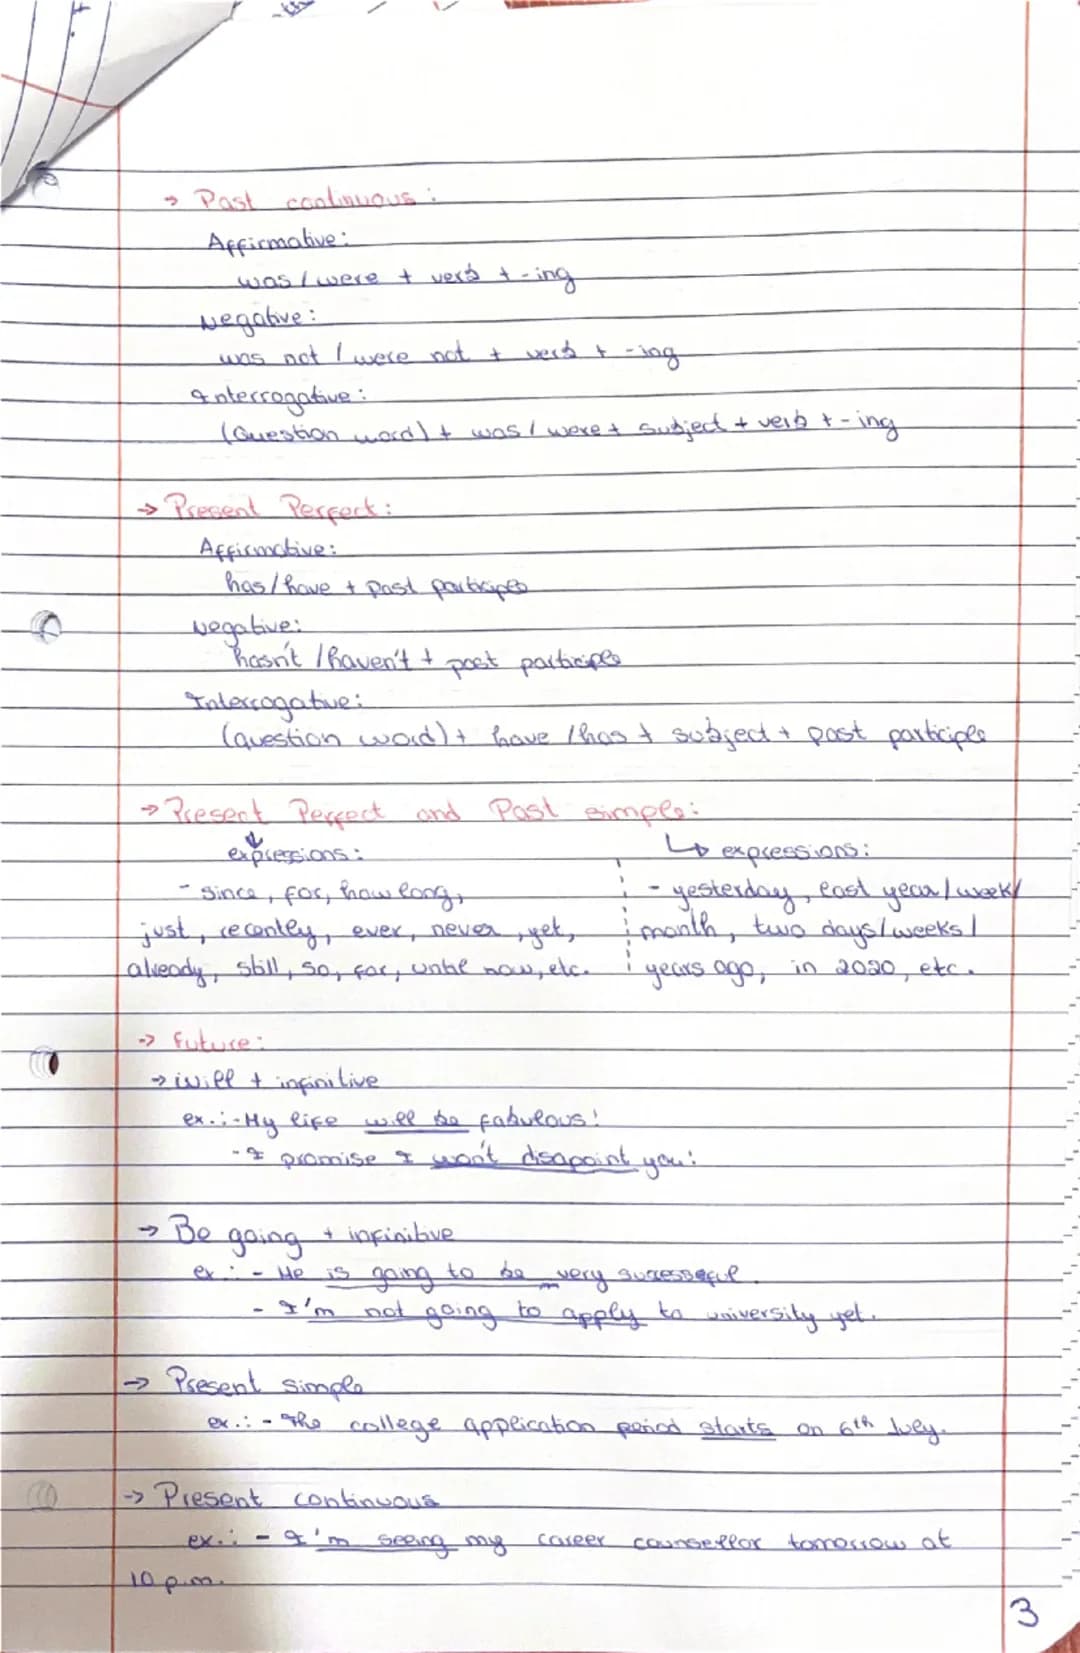 → Past continuous:
Affirmative:
was / were + verb + -ing
Negative:
was not / were not + verb + -ing
Interrogative:
(Question word) + was / were + subject + verb + -ing
→ Present Perfect:
Affirmative:
has / have + past participle
Negative:
hasn't / haven't + past participle
Interrogative:
(question word) + have / has + subject + past participle
→ Present Perfect and Past simple:
expressions:
- since, for, how long,
just, recently, ever, never, yet,
already, still, so, far, until now, etc.
↳ expressions:
- yesterday, last year / week /
month, two days / weeks /
years ago, in 2020, etc.
→ future:
→ will + infinitive
ex.: - My life will be fabulous!
- I promise I won't disapoint you!
→ Be going + infinitive
ex.: - He is going to be very sucessful.
- I'm not going to apply to university yet.
→ Present simple
ex.: - The college application period starts on 6th July.
→ Present continuous
ex.: - I'm seeing my career counsellor tomorrow at
10 p.m.
3